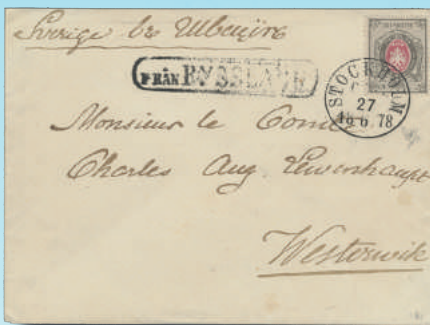 Sverige
FRÅN RYSSLAND
STOCKHOLM
27
6
78
Monsieur le Comte
Charles Aug. Lewenhaupt
Westerwik